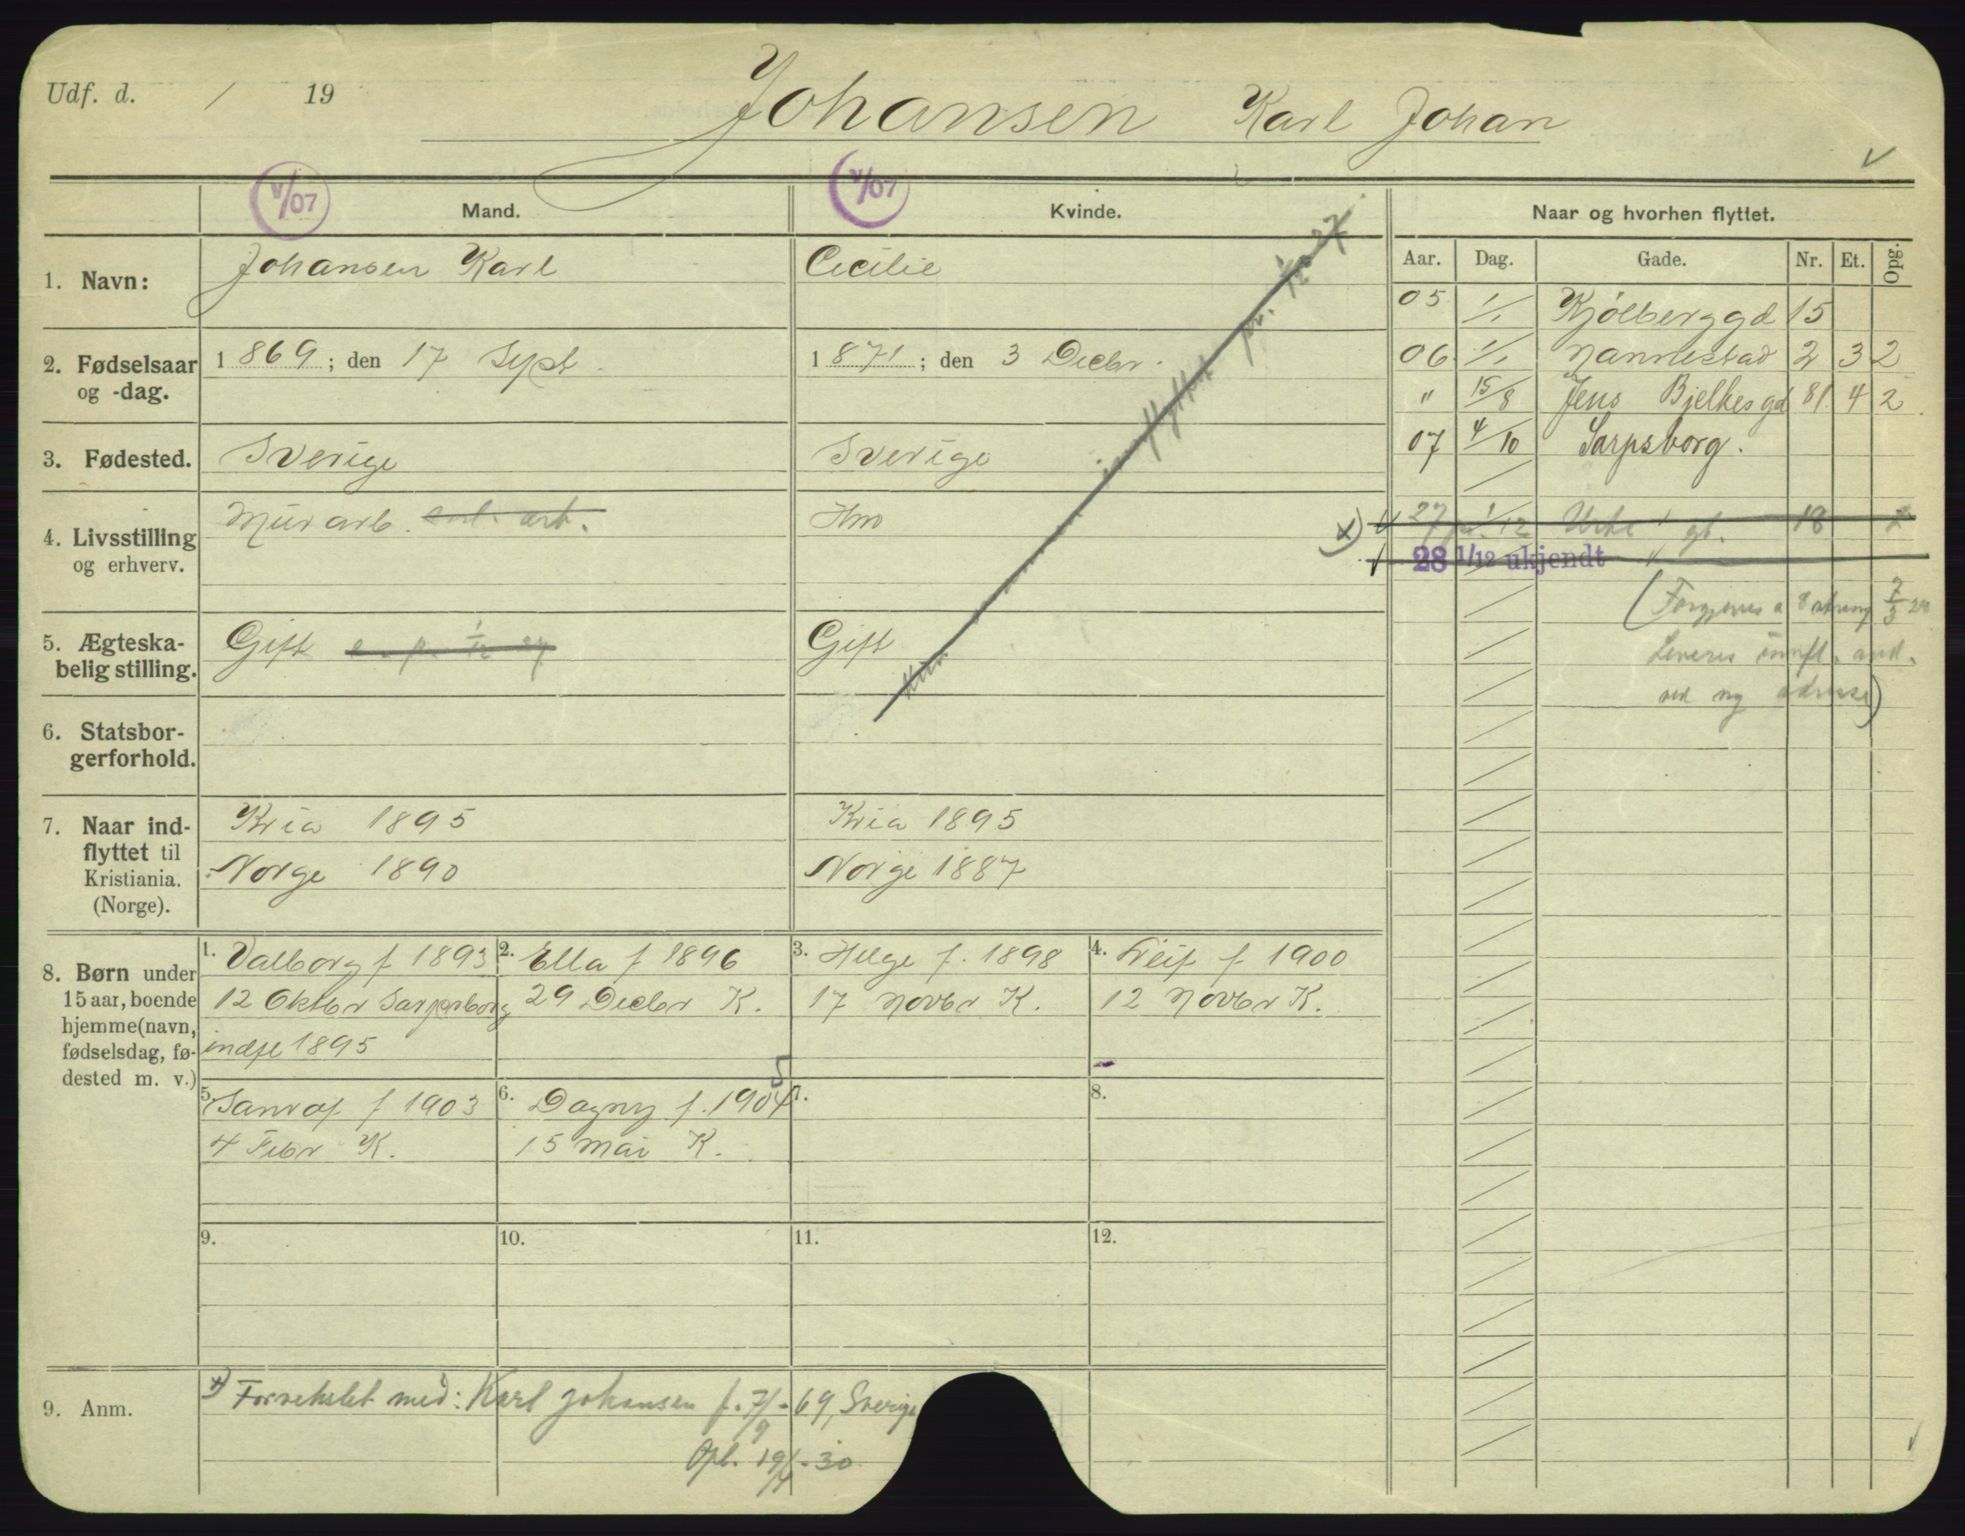 Udf. d. / 19
Johansen Karl Johan
V/07
V/07
Mand.
Kvinde.
Naar og hvorhen flyttet.
Aar. Dag. Gade. Nr. Et. Opg.
1. Navn:
Johansen Karl
Cecilie
05 1/1 Kjølberggd 15
2. Fødselsaar
og -dag.
1869; den 17 Sept.
1871; den 3 Decbr.
06 1/1 Nannestad 2 3 2
" 15/8 Jens Bjelkesgd 81 4 2
07 4/10 Sarpsborg.
3. Fødested.
Sverige
Sverige
4. Livsstilling
og erhverv.
Murarb. arb.
Hm
27 pr. 1/12 gt. 18
28 1/12 ukjendt
innflyttet pr. 1/12 27
5. Ægteska-
belig stilling.
Gift e. p. 1/12 27
Gift
Leveres innfl. and.
ved ny adresse)
6. Statsbor-
gerforhold.
7. Naar ind-
flyttet til
Kristiania.
(Norge).
Kria 1895
Norge 1890
Kria 1895
Norge 1887
8. Børn under
15 aar, boende
hjemme (navn,
fødselsdag, fø-
dested m. v.)
1. Valborg f 1893
12 Oktbr Sarpsborg
indfl 1895
2. Ella f 1896
29 Decbr K.
3. Helge f. 1898
17 Novbr K.
4. Leif f 1900
12 Novbr K.
5. f 1903
4 Febr K.
6. Dagny f. 1904 5
15 Mai K.
7.
8.
9.
10.
11.
12.
9. Anm.
x) Forvekslet med: Karl Johansen f. 7/9-69, Sverige
Opl. 19/4-30